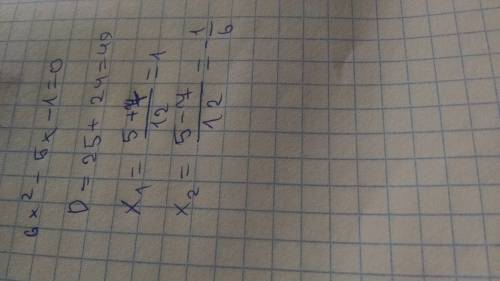 6x² - 5x - 1 = 0
D = 25 + 24 = 49
x₁ = (5+7)/12 = 1
x₂ = (5-7)/12 = -1/6